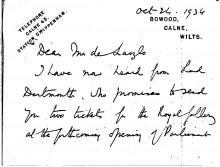 Oct 24. 1934
TELEPHONE
CALNE 42.
STATION, CHIPPENHAM.
BOWOOD,
CALNE,
WILTS.
Dear Mr de Laszlo
I have now heard from Lord
Dartmouth. He promises to send
you two tickets for the Royal Gallery
at the forthcoming opening of Parliament